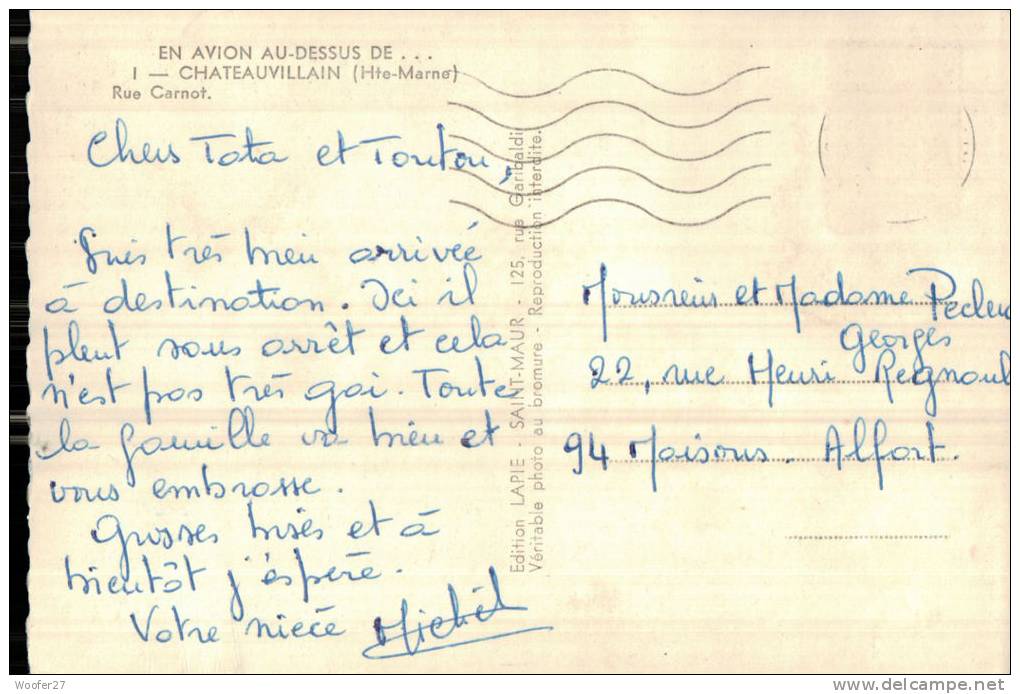 EN AVION AU-DESSUS DE...
1 — CHATEAUVILLAIN (Hte-Marne)
Rue Carnot.
Chers Tata et Tonton,
Suis très bien arrivée
à destination. Ici il
pleut sans arrêt et cela
n'est pas très gai. Toute
la famille va bien et
vous embrasse.
Grosses bises et à
bientôt j'espère.
Votre nièce Michel
Edition LAPIE - SAINT-MAUR - 125, rue Garibaldi
Véritable photo au bromure - Reproduction interdite.
Monsieur et Madame
Georges
22, rue Henri Regnaul
94 Maisons. Alfort.
Woofer27
delcampe.net